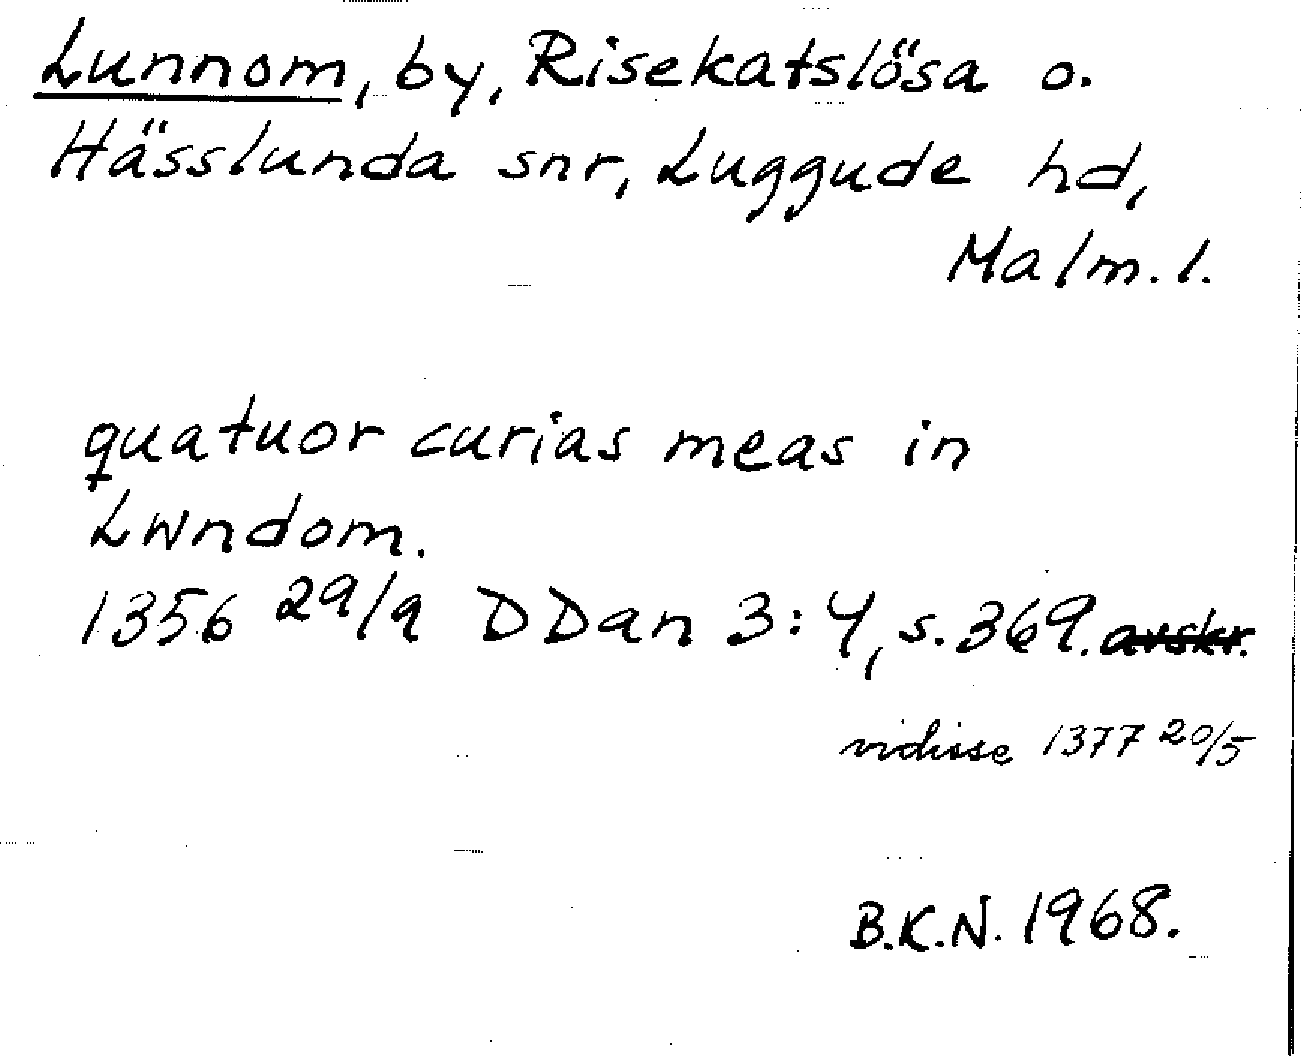 Lunnom, by, Risekatslösa o.
Hässlunda snr, Luggude hd,
Malm. l.
quatuor curias meas in
Lwndom.
1356 29/9 DDan 3:4, s. 369. avskr.
vidisse 1377 20/5
B.K.N. 1968.